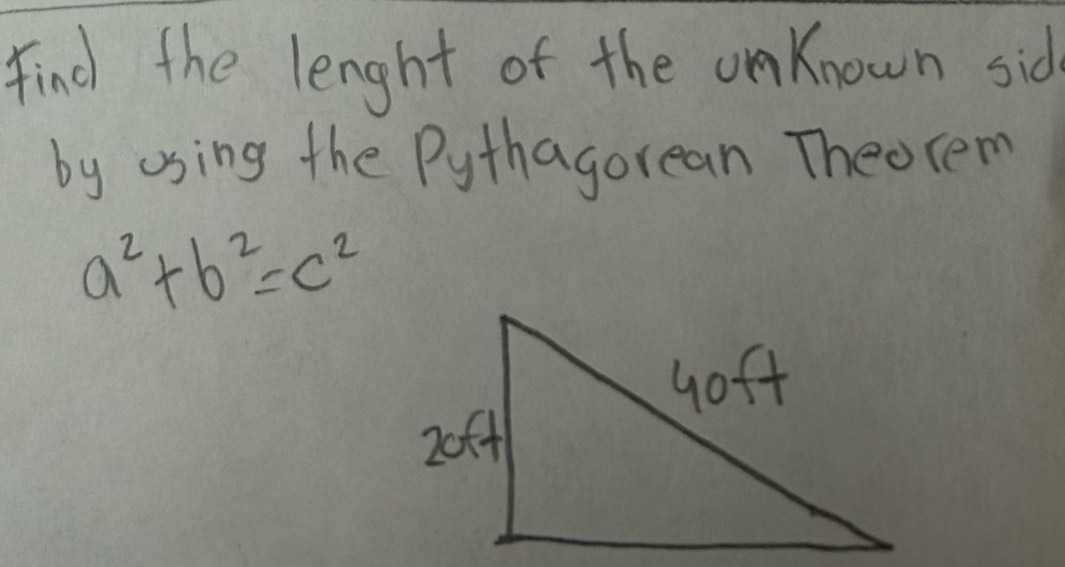 Find the lenght of the umKnown side
by using the Pythagorean Theorem
a²+b²=c²
40ft
20ft